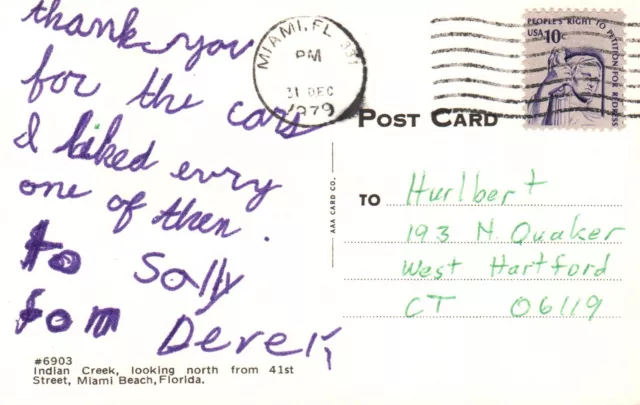 thank you
for the cars
I liked evry
one of then.
to Sally
fom Derek
#6903
Indian Creek, looking north from 41st
Street, Miami Beach, Florida.
MIAMI, FL 331
PM
31 DEC
1979
PEOPLE'S RIGHT TO PETITION FOR REDRESS
USA 10c
POST CARD
AAA CARD CO.
TO
Hurlbert
193 N. Quaker
West Hartford
CT 06119